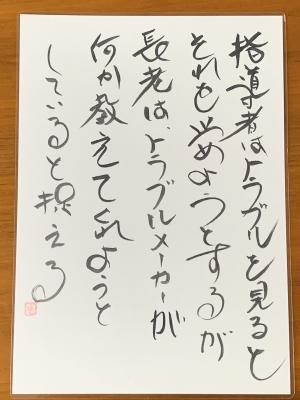 指導者はトラブルを見ると
それを止めようとするが
長老は、トラブルメーカーが
何か教えてくれようと
していると捉える